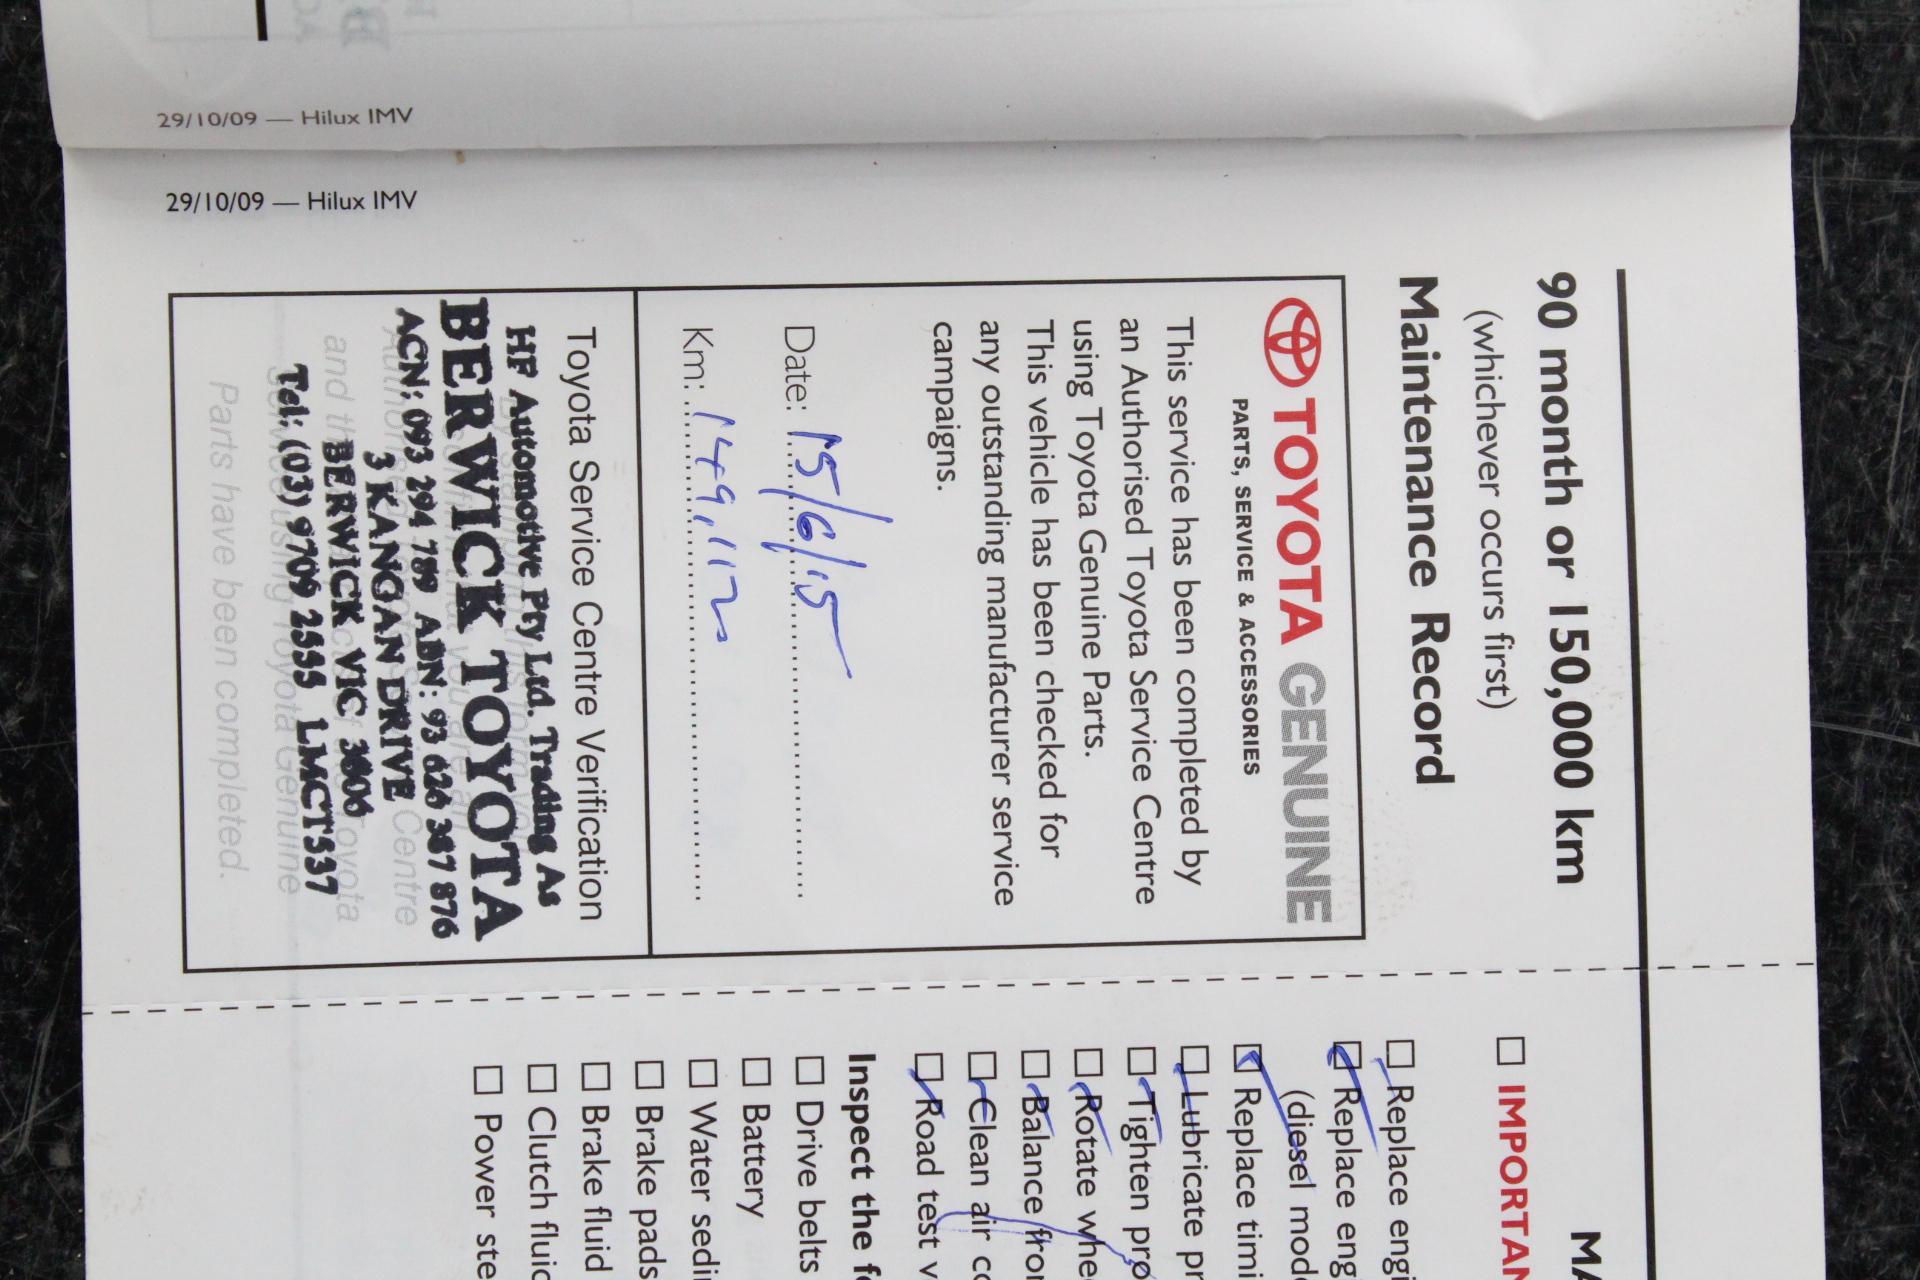 29/10/09 — Hilux IMV
29/10/09 — Hilux IMV
90 month or 150,000 km
(whichever occurs first)
Maintenance Record
TOYOTA GENUINE
PARTS, SERVICE & ACCESSORIES
This service has been completed by
an Authorised Toyota Service Centre
using Toyota Genuine Parts.
This vehicle has been checked for
any outstanding manufacturer service
campaigns.
Date: 15/6/15
Km: 149,112
Toyota Service Centre Verification
HF Automotive Pty Ltd. Trading As
BERWICK TOYOTA
ACN: 093 294 789 ABN: 93 626 387 876
3 KANGAN DRIVE
BERWICK VIC 3806
Tel: (03) 9709 2555 LMCT537
Parts have been completed.
MA
IMPORTAN
Replace engi
Replace eng
(diesel mode
Replace timi
Lubricate pr
Tighten pro
Rotate whee
Balance fron
Clean air co
Road test v
Inspect the fo
Drive belts
Battery
Water sedi
Brake pads
Brake fluid
Clutch fluid
Power ste